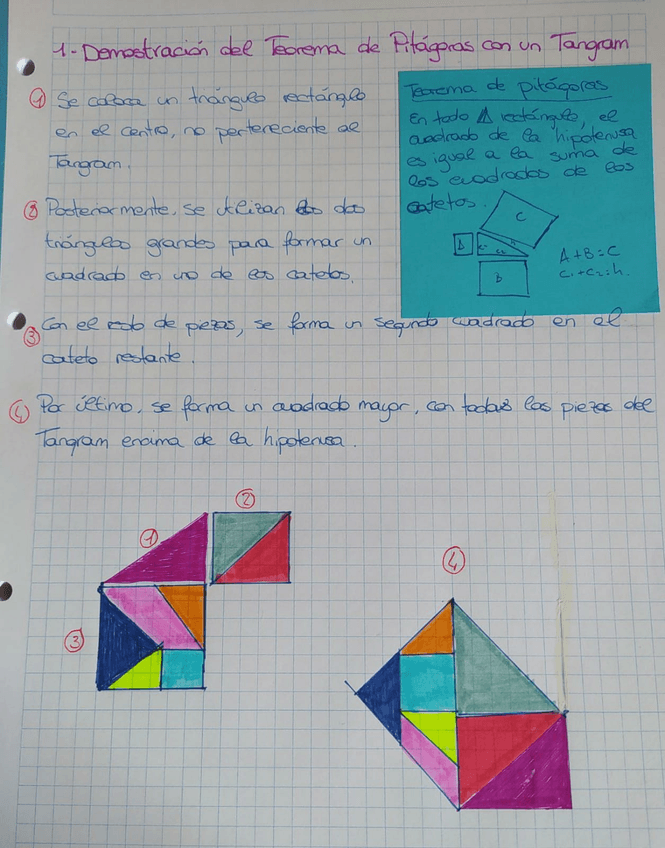 1.- Demostración del Teorema de Pitágoras con un Tangram
① Se coloca un triángulo rectángulo
en el centro, no perteneciente al
Tangram.
② Posteriormente, se utilizan dos
triángulos grandes para formar un
cuadrado en uno de los catetos.
③ Con el resto de piezas, se forma un segundo cuadrado en el
cateto restante.
④ Por último, se forma un cuadrado mayor, con todas las piezas del
Tangram encima de la hipotenusa.
Teorema de pitágoras
En todo △ rectángulo, el
cuadrado de la hipotenusa
es igual a la suma de
los cuadrados de los
catetos.
C
A
h
B
A+B=C
C₁+C₂=h.
②
①
③
④